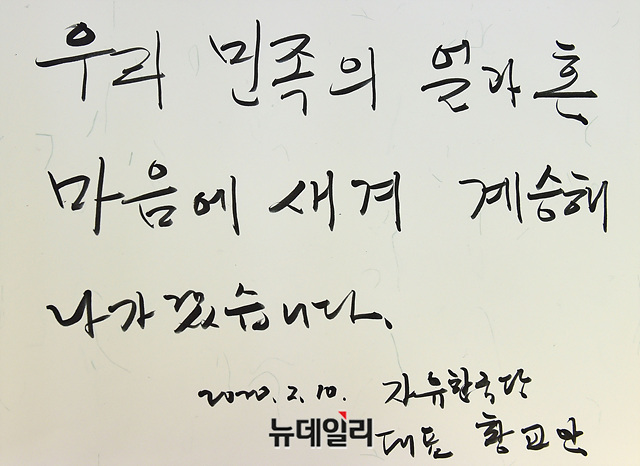 우리 민족의 얼과 혼
마음에 새겨 계승해
나가겠습니다.
2020. 2. 10. 자유한국당
대표 황교안
뉴데일리